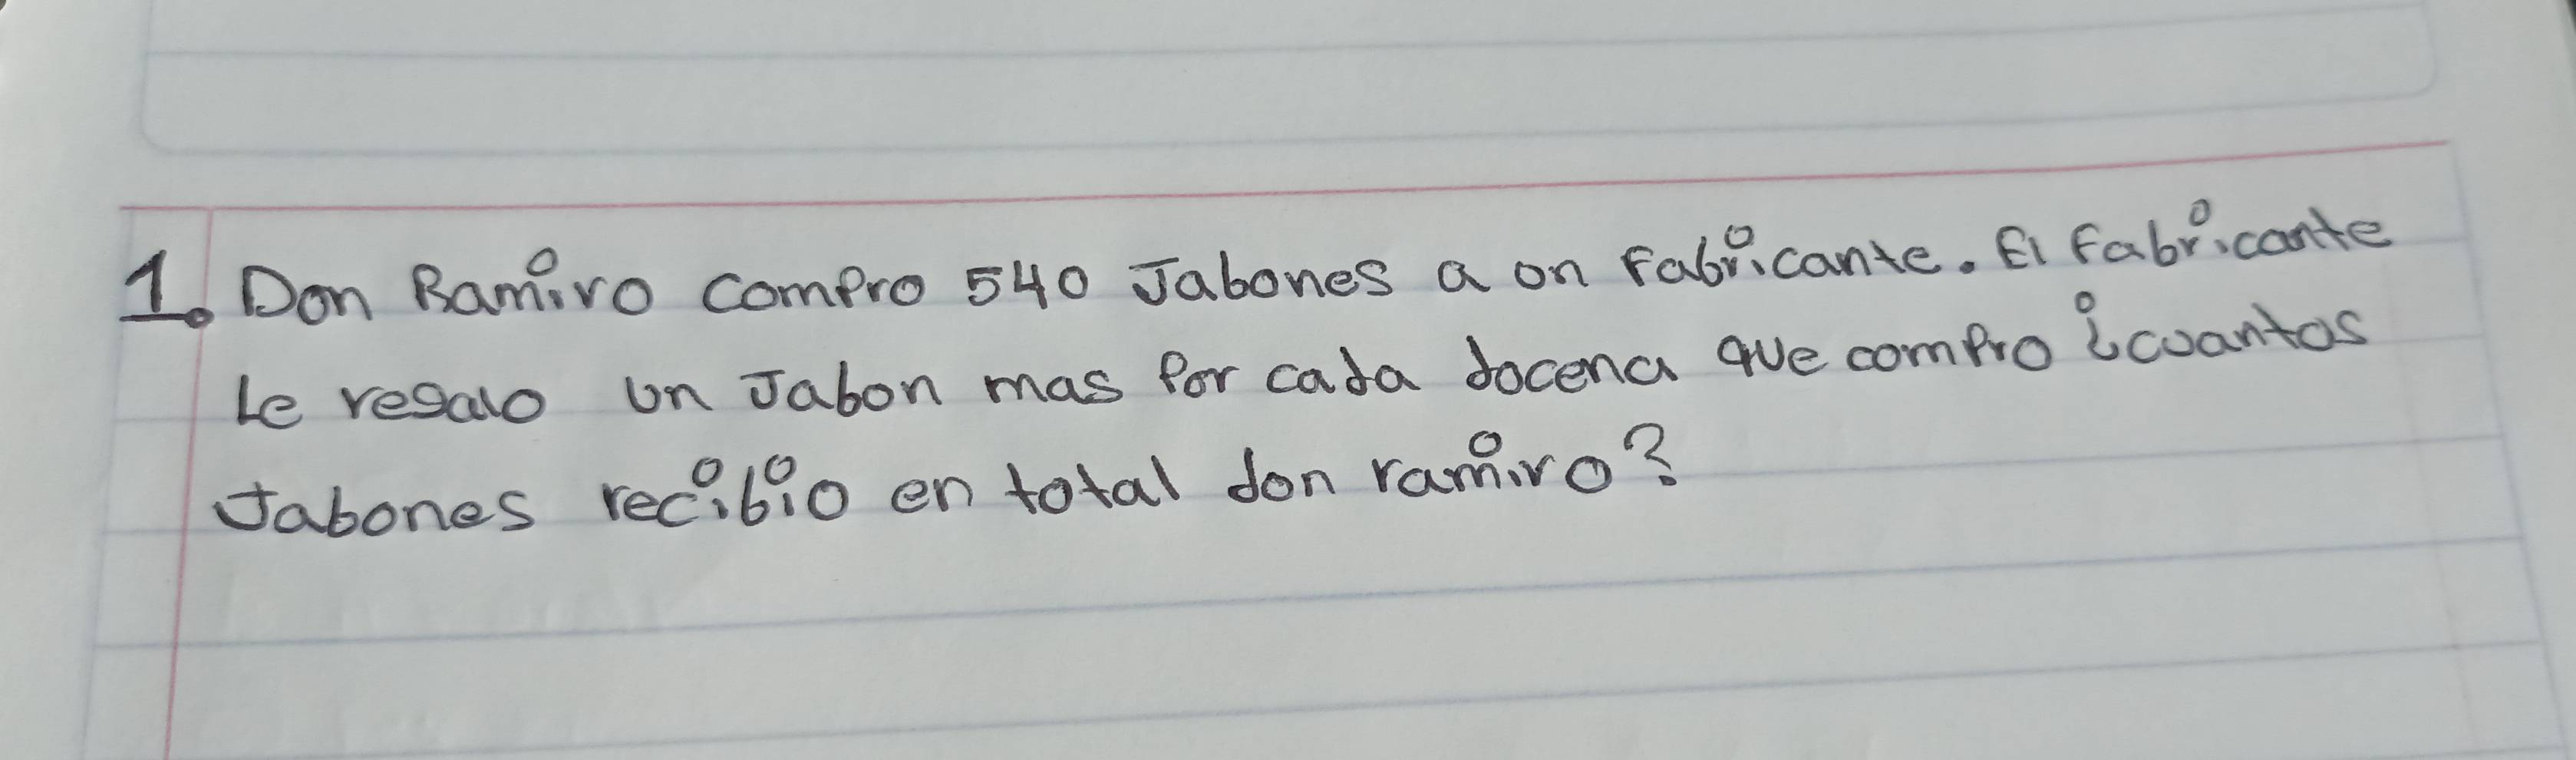 1. Don Ramiro compro 540 Jabones a on Fabricante. El Fabricante
Le regalo un Jabon mas Por cada docena que compro ¿cuantos
Jabones recibio en total don ramiro?